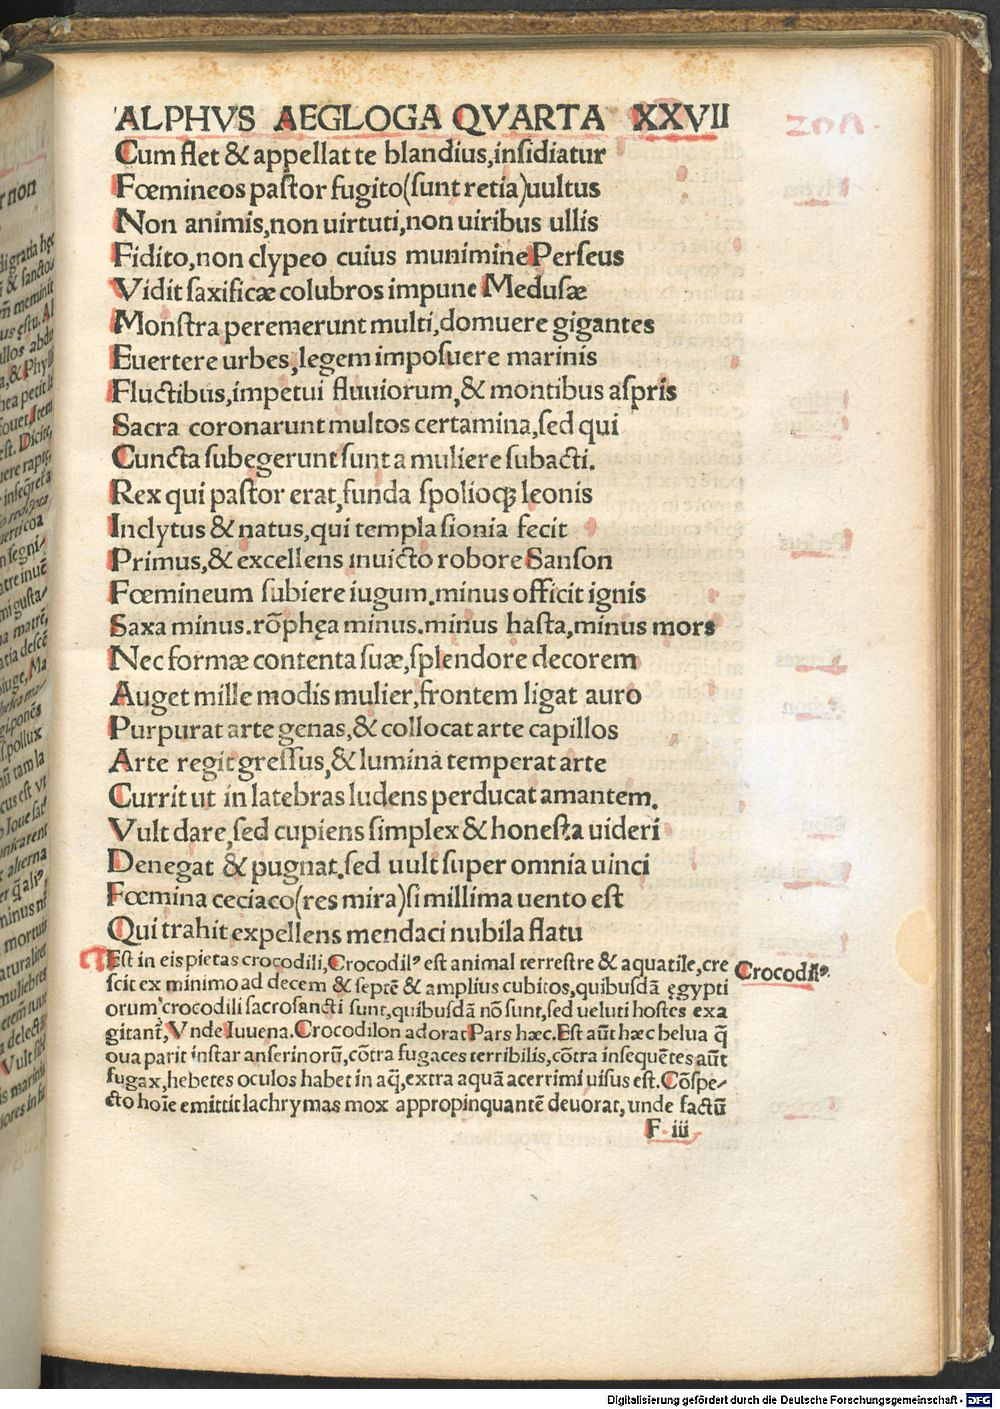 ALPHVS AEGLOGA QVARTA XXVII
Cum flet & appellat te blandius,insidiatur
Fœmineos pastor fugito(sunt retia)uultus
Non animis,non uirtuti,non uiribus ullis
Fidito,non clypeo cuius munimine Perseus
Vidit saxificæ colubros impune Medusæ
Monstra peremerunt multi,domuere gigantes
Euertere urbes,legem imposuere marinis
Fluctibus,impetui fluuiorum,& montibus aspris
Sacra coronarunt multos certamina,sed qui
Cuncta subegerunt sunt a muliere subacti.
Rex qui pastor erat,funda spolioqꝫ leonis
Inclytus & natus,qui templa sionia fecit
Primus,& excellens inuicto robore Sanson
Fœmineum subiere iugum.minus officit ignis
Saxa minus.rõphęa minus.minus hasta,minus mors
Nec formæ contenta suæ,splendore decorem
Auget mille modis mulier,frontem ligat auro
Purpurat arte genas,& collocat arte capillos
Arte regit gressus,& lumina temperat arte
Currit ut in latebras ludens perducat amantem.
Vult dare,sed cupiens simplex & honesta uideri
Denegat & pugnat.sed uult super omnia uinci
Fœmina ceciaco(res mira)simillima uento est
Qui trahit expellens mendaci nubila flatu
Est in eis pietas crocodili,Crocodilꝰ est animal terrestre & aquatile,cre
Crocodilꝰ.
scit ex minimo ad decem & septẽ & amplius cubitos,quibusdã ęgypti
orum crocodili sacrosancti sunt,quibusdã nõ sunt,sed ueluti hostes exa
gitant᷑,Vnde Iuuena.Crocodilon adorat Pars hæc.Est aũt hæc belua q̃
oua parit instar anserinorũ,cõtra fugaces terribilis,cõtra insequẽtes aũt
fugax,hebetes oculos habet in aq̃,extra aquã acerrimi uisus est.Cõspe⸗
cto hoĩe emittit lachrymas mox appropinquantẽ deuorat,unde factũ
F iii
Digitalisierung gefördert durch die Deutsche Forschungsgemeinschaft - DFG